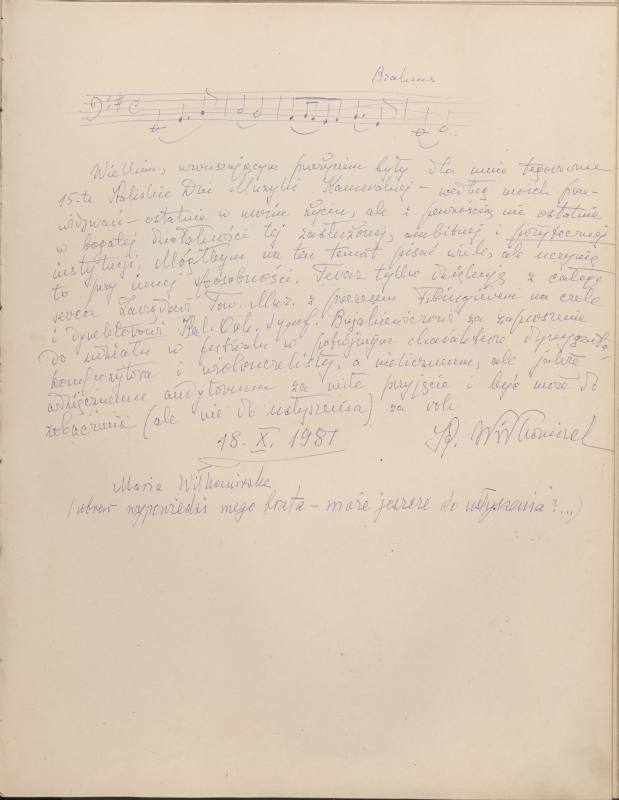 Brahms
Wielkim, wzruszającym przeżyciem były dla mnie tegoroczne
15-te Kaliskie Dni Muzyki Kameralnej – według moich prze-
widywań – ostatnie w moim życiu, ale z pewnością nie ostatnie
w bogatej działalności tej zasłużonej, ambitnej i pożytecznej
instytucji. Mógłbym na ten temat pisać wiele, ale uczynię
to przy innej sposobności. Teraz tylko dziękuję z całego
serca Zarządowi Tow. Muz. z prezesem na czele
i dyrektorowi Kal. Ork. Symf. za zaproszenie
do udziału w festiwalu w potrójnym charakterze dyrygenta,
kompozytora i wiolonczelisty, a nielicznemu, ale jakże
wdzięcznemu audytorium za miłe przyjęcie i być może do
zobaczenia (ale nie do usłyszenia) za rok
18. X. 1981 K. Wiłkomirski
Maria Wiłkomirska
(wbrew wypowiedzi mego brata – może jeszcze do usłyszenia?...)